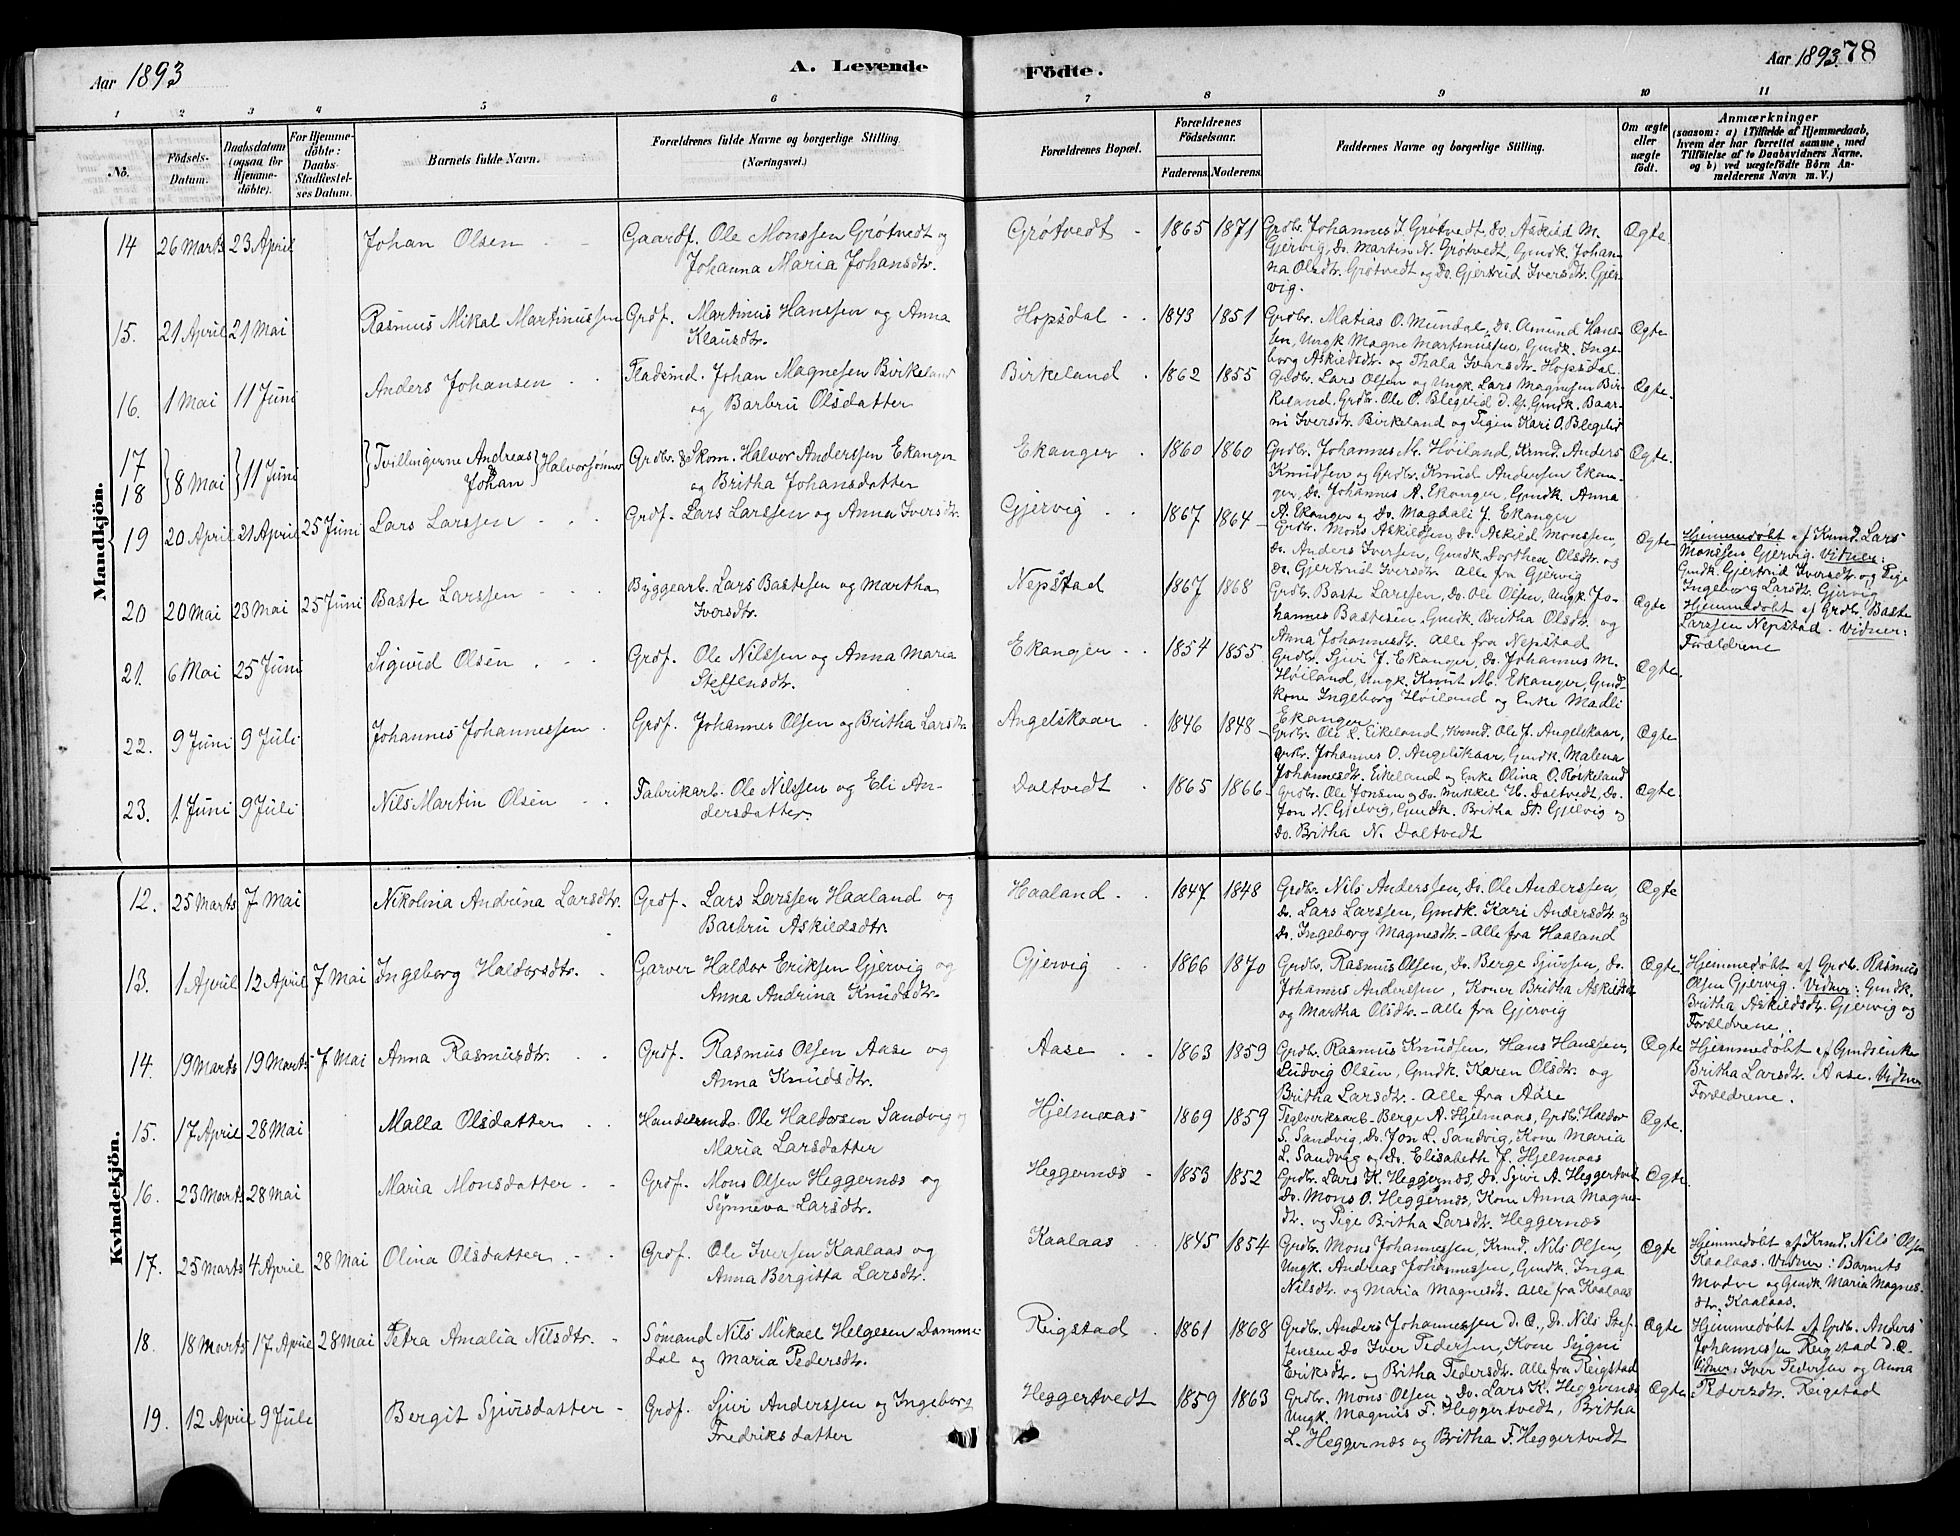 Aar 1893
A. Levende
Födte.
Aar 1893.
78
1 2 3 4 5 6 7 8 9 10 11
No.
Födsels-
Datum.
Daabsdatum
(ogsaa for
Hjemme-
döbte).
For Hjemme-
döbte:
Daabs-
Stadfæstel-
ses Datum.
Barnets fulde Navn.
Forældrenes fulde Navne og borgerlige Stilling
(Næringsvei.)
Forældrenes Bopæl.
Forældrenes
Födselsaar.
Faderens. Moderens.
Faddernes Navne og borgerlige Stilling.
Om ægte
eller
uægte
födt.
Anmærkninger
(saasom: a) i Tilfælde af Hjemmedaab,
hvem der har forrettet samme, med
Tilföielse af to Daabsvidners Navne.
og b) ved uægtefödte Börn An-
melderens Navn m. V.)
Mandkjön.
14 26 Marts 23 April Johan Olsen Gaardf. Ole Monssen Grøtvedt og
Johanna Maria Johansdtr.
Grøtvedt 1865 1871 Grdbr. Johannes J. Grøtvedt, Do. Askild M.
Gjervig, Do. Martin N. Grøtvedt, Gmdk. Johan-
na Olsdtr. Grøtvedt og Do. Gjertrud Iversdtr. Gjer-
vig.
Ægte.
15. 21 April 21 Mai Rasmus Mikal Martinussen Grdf. Martinus Hanssen og Anna
Klausdtr.
Hopsdal 1843 1851 Grdbr. Matias O. Mundal, Do. Amund Hans-
sen, Ungk. Magne Martinussen, Gmdk. Inge-
borg Askildsdtr. og Thala Ivarsdtr. Hopsdal.
Ægte
16. 1 Mai 11 Juni Anders Johansen Pladsmd. Johan Magnesen Birkeland
og Barbru Olsdatter
Birkeland 1862 1855 Grdbr. Lars Olsen og Ungk. Lars Magnesen Bir-
keland, Grdbr. Ole O. Blegelid d. y., Gmdk. Baar-
ni Iversdtr. Birkeland og Pigen Kari O. Blegelid
Ægte.
17
18 8 Mai 11 Juni Tvillingerne Andreas
& Johan Halvorsønner Grdbr. & Skom. Halvor Anderssen Ekanger
og Britha Johansdatter
Ekanger 1860 1860 Grdbr. Johannes M. Høiland, Krmd. Anders
Knudsen og Grdbr. Knud Andersen Ekan-
ger, Do. Johannes A. Ekanger, Gmdk. Anna
A. Ekanger og Do. Magdali J. Ekanger
Ægte.
19 20 April 21 April 25 Juni Lars Larssen Grdf. Lars Larssen og Anna Iversdtr.
Gjervig 1867 1864 Grdbr. Mons Askildsen, Do. Askild Monssen,
Do. Anders Iversen, Gmdk. Dorthea Olsdtr. og
Do. Gjertrud Iversdtr. Alle fra Gjervig
Ægte
Hjemmedøbt af Krmd. Lars
Monssen Gjervig. Vidner:
Gmdk. Gjertrud Iversdtr. og Pige
Ingeborg Larsdtr. Gjervig
20 20 Mai 23 Mai 25 Juni Baste Larssen Byggearb. Lars Bastesen og Martha
Iversdtr.
Nepstad 1867 1868 Grdbr. Baste Larssen, Do. Ole Olsen, Ungk. Jo-
hannes Bastesen, Gmdk. Britha Olsdtr. og
Anna Johannesdtr. Alle fra Nepstad
Ægte
Hjemmedøbt af Grdbr. Baste
Larssen Nepstad. Vidner:
Forældrene
21. 6 Mai 25 Juni Sigurd Olsen Grdf. Ole Nilssen og Anna Maria
Steffensdtr.
Ekanger 1854 1855 Grdbr. Sjur J. Ekanger, Do. Johannes M.
Høiland, Ungk. Knut M. Ekanger, Gmd-
kone Ingeborg Høiland og Enke Madli
Ekanger.
Ægte.
22. 9 Juni 9 Juli Johannes Johannessen Grdf. Johannes Olsen og Britha Larsdtr.
Angelskaar 1846 1848 Grdbr. Ole L. Eikeland, Krmd. Ole J. Angelskaar,
Grdbr. Johannes O. Angelskaar, Gmdk. Malena
Johannesdtr. Eikeland og Enke Olina O. Røskeland
Ægte
23. 1. Juni 9 Juli Nils Martin Olsen Fabrikarb. Ole Nilssen og Eli An-
dersdatter
Daltvedt 1865 1866 Grdbr. Ole Jonsen og Do. Mikkel H. Daltvedt, Do.
Jon N. Gjelvig, Gmdk. Britha St. Gjelvig og
Do. Britha N. Daltvedt
Ægte.
Kvindekjön.
12. 25 Marts 7 Mai Nikolina Andrina Larsdtr. Grdf. Lars Larssen Haaland og
Barbru Askildsdtr.
Haaland 1847 1848 Grdbr. Nils Anderssen, Do. Ole Anderssen,
Do. Lars Larssen, Gmdk. Kari Andersdtr. og
Do. Ingeborg Magnesdtr. - Alle fra Haaland
Ægte
13. 1 April 12 April 7 Mai Ingeborg Haldorsdtr. Garver Haldor Eriksen Gjervig og
Anna Andrina Knudsdtr.
Gjervig 1866 1870 Grdbr. Rasmus Olsen, Do. Berge Sjursen, Do.
Johannes Anderssen, Koner Britha Askildsdtr.
og Martha Olsdtr. - Alle fra Gjervig
Ægte.
Hjemmedøbt af Grdb. Rasmus
Olsen Gjervig. Vidner: Gmdk.
Britha Askildsdtr. Gjervig og
Forældrene.
14. 19 Marts 19 Marts 7 Mai Anna Rasmusdtr. Grdf. Rasmus Olsen Aase og
Anna Knudsdtr.
Aase 1863 1859 Grdbr. Rasmus Knudsen, Hans Hanssen,
Ludvig Olsen, Gmdk. Karen Olsdtr. og
Britha Larsdtr. - Alle fra Aase
Ægte
Hjemmedøbt af Gmdsenke
Britha Larsdtr. Aase. Vidner
Forældrene.
15. 17 April 28 Mai Malla Olsdatter Handelsmd. Ole Haldorsen Sandvig og
Maria Larsdatter
Hjelmaas 1869 1859 Teglverksarb. Berge A. Hjelmaas, Grdbr. Haldor
S. Sandvig, Do. Jon L. Sandvig, Kone Maria
L. Sandvig og Do. Elisabeth J. Hjelmaas
Ægte.
16. 23 Marts 28 Mai Maria Monsdatter Grdf. Mons Olsen Heggernæs og
Synneva Larsdtr.
Heggernæs 1853 1852 Grdbr. Lars K. Heggernæs, Do. Sjur A. Heggertvedt
Do. Mons O. Heggernæs, Kone Anna Magne-
dtr. og Pige Britha Larsdtr. Heggernæs
Ægte.
17. 25 Marts 4 April 28 Mai Olina Olsdatter Grdf. Ole Iversen Kaalaas og
Anna Bergitta Larsdtr.
Kaalaas 1845 1854 Grdbr. Mons Johannessen, Krmd. Nils Olsen,
Ungk. Andreas Johannessen, Gmdk. Inga
Nilsdtr. og Maria Magnesdtr. Alle fra Kaalaas
Ægte
Hjemmedøbt af Krmd. Nils Olsen
Kaalaas. Vidner: Barnets
Moder og Gmdk. Maria Magnes-
dtr. Kaalaas.
18. 18 Marts 17 April 28 Mai Petra Amalia Nilsdtr. Sømand Nils Mikael Helgesen Damme-
dal og Maria Pedersdtr.
Reigstad 1861 1868 Grdbr. Anders Johannessen d. Æ., Do. Nils Stef-
fensen Do Iver Pedersen, Kone Sygni
Eriksdtr. og Britha Pedersdtr. Alle fra Reigstad
Ægte
Hjemmedøbt af Grdbr. Anders
Johannessen Reigstad d. Æ.
Vidner: Iver Pedersen og Anna
Pedersdtr. Reigstad
19. 12 April 9 Juli Bergit Sjursdatter Grdf. Sjur Anderssen og Ingeborg
Fredriksdatter
Heggertvedt 1859 1863 Grdbr. Mons Olsen og Do. Lars K. Heggernæs
Ungk. Magnus F. Heggertvedt, Britha
L. Heggernæs og Britha F. Heggertvedt
Ægte